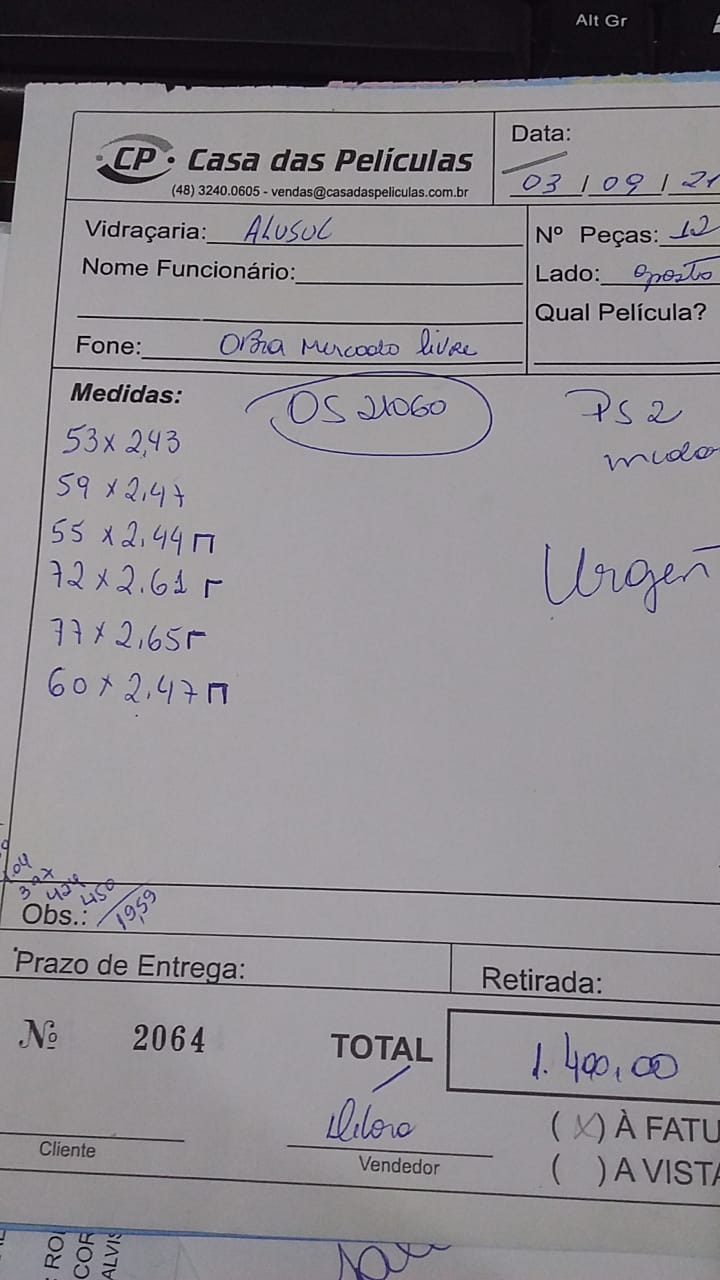 Alt Gr
CP · Casa das Películas
(48) 3240.0605 - vendas@casadaspeliculas.com.br
Data:
03 / 09 / 21
Vidraçaria: ALUSUL
Nº Peças: 12
Nome Funcionário:
Lado: oposto
Qual Película?
Fone: OBRA Mercado livre
Medidas:
OS 21060
PS 2
53 x 2,43
59 x 2,47
55 x 2,44
Urgen
72 x 2.61
77 x 2,65
60 x 2,47
424
450
Obs.: 19,59
Prazo de Entrega:
Retirada:
Nº 2064
TOTAL
1.400,00
Cliente
Vendedor
(X) À FATU
( ) A VISTA
ROI
COR
ALVIS